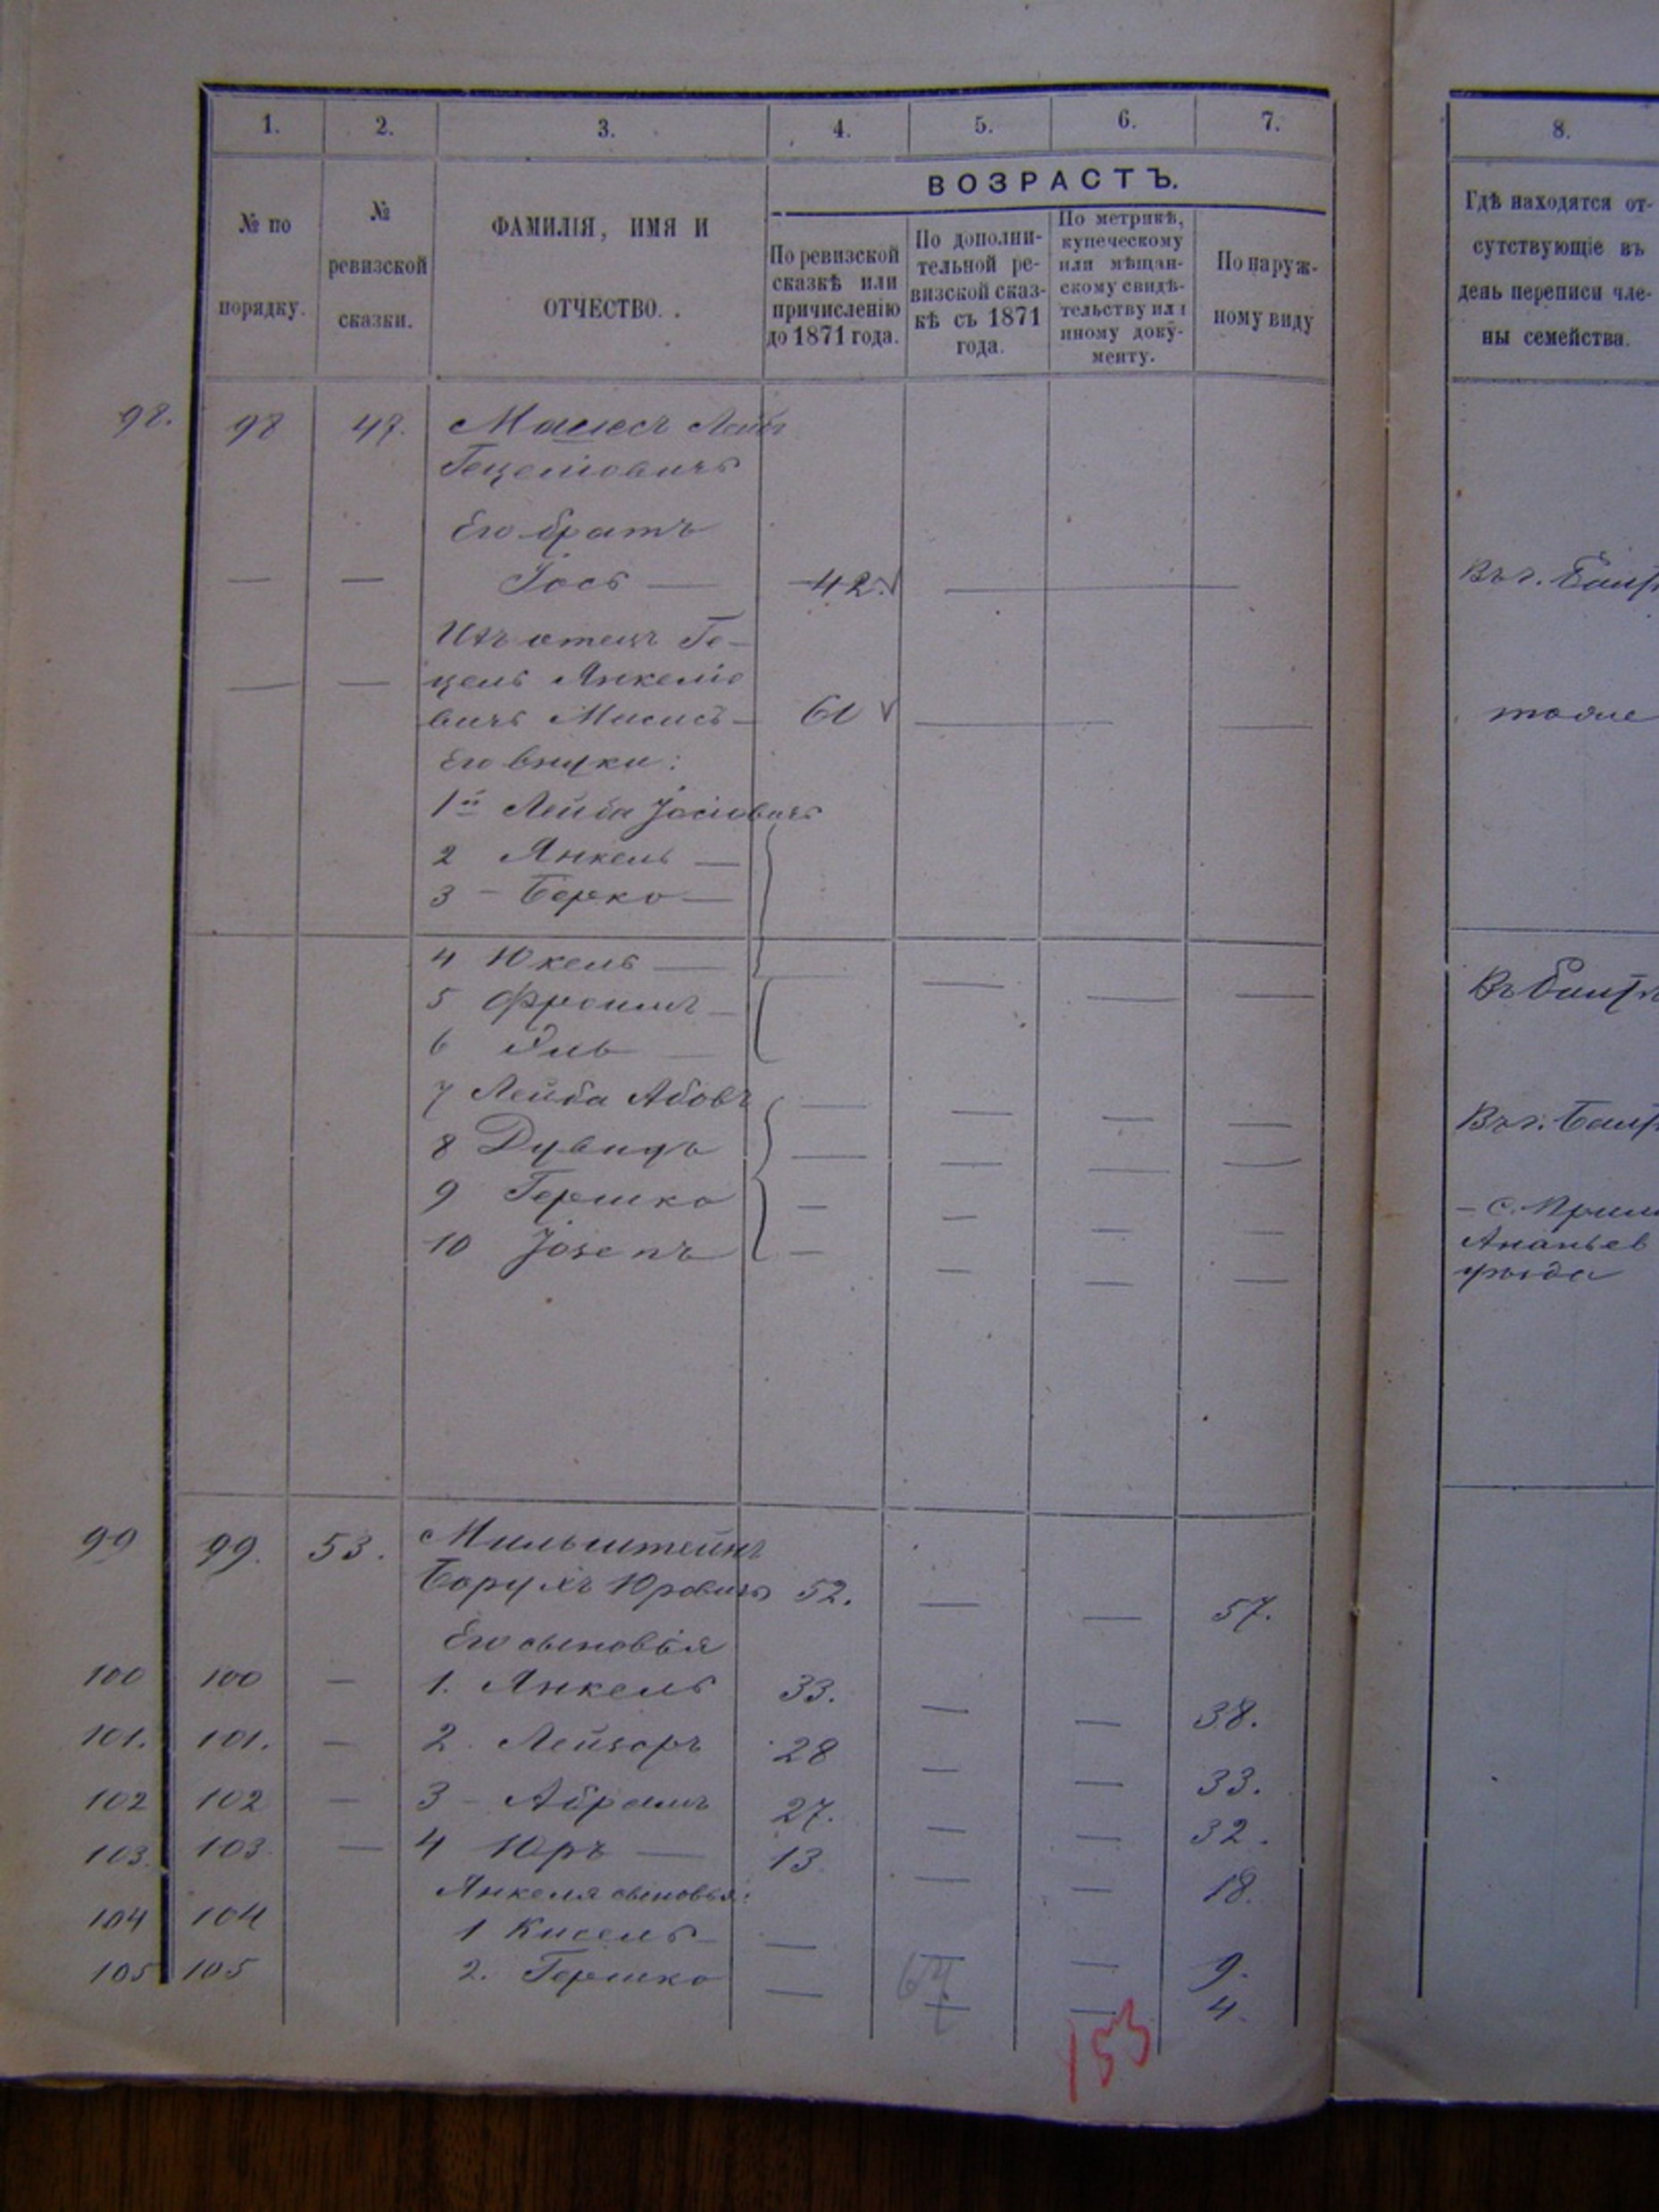 1. 2. 3. 4. 5. 6. 7. 8.
ВОЗРАСТЪ.
№ по порядку.
№ ревизской сказки.
ФАМИЛІЯ, ИМЯ И ОТЧЕСТВО.
По ревизской сказкѣ или причисленію до 1871 года.
По дополнительной ревизской сказкѣ съ 1871 года.
По метрикѣ, купеческому или мѣщанскому свидѣтельству или иному документу.
По наружному виду
Гдѣ находятся отсутствующіе въ день переписи члены семейства.
98. 98 47. Лейб
Гецеліовичъ
Его братъ
— — Іось — 42. —
Ихъ отецъ Ге-
— — цель Янкеліо
вичъ — 61 — — тоже
Его внуки:
1й Лейба Іосіовичъ
2 Янкель —
3 – Берко —
4 Юкель —
5 Фроимъ —
6
7 Лейба Абовъ — — — —
8 Дувидъ — — — —
9 Гершко — — — — – с.
10 Іосепъ — — — — Ананьев
уѣзда
99 99. 53. Мильштейнъ
Борухъ Юровичъ 52. — — 57.
Его сыновья
100 100 — 1. Янкель 33. — — 38.
101. 101. — 2. Лейзоръ 28 — — 33.
102 102 — 3 – Абрамъ 27. — — 32.
103. 103. — 4 Юръ — 13 — — 18.
Янкеля сыновья:
104 104 1 Кисель — — — — 9.
105 105 2. Гершко — — — 4.
67
153